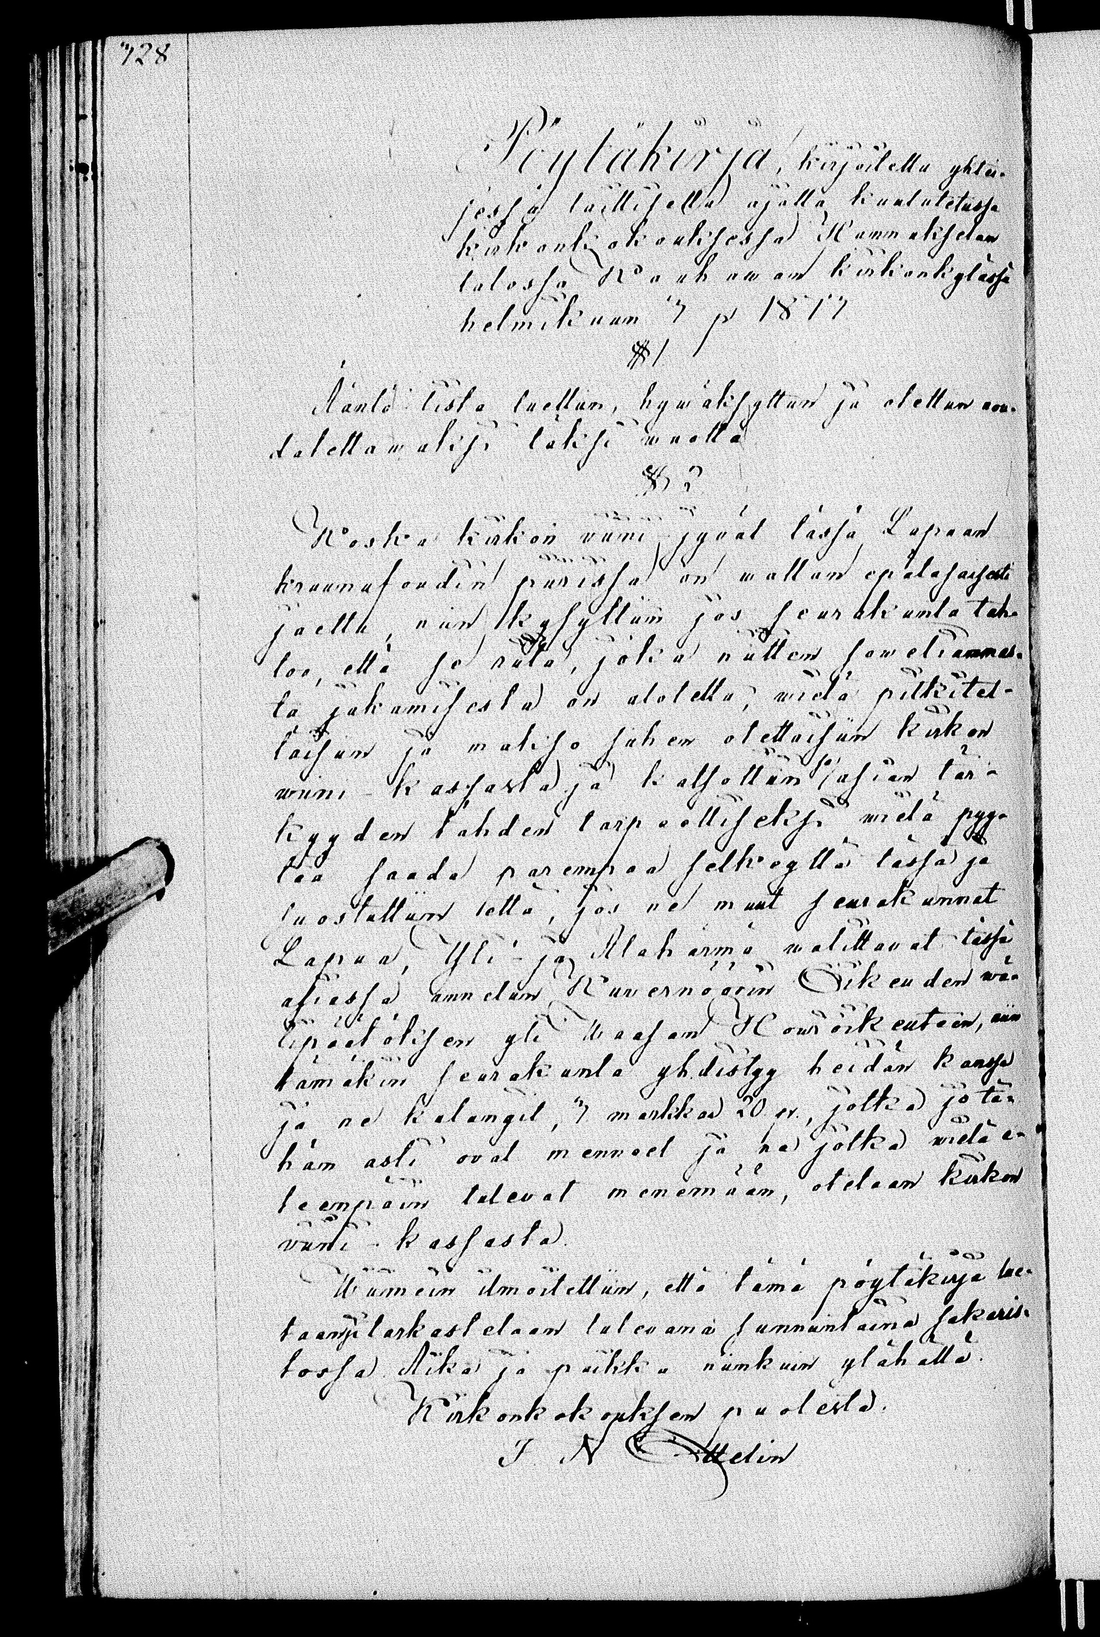 728
Pöytäkirja, kirjoitettu yhtei-
sessä laillisella ajalla kuulutetussa
kirkonkokouksessa Hammakselan
talossa Kauhawan kirkonkylässä
helmikuun 7 p 1877
§ 1
Ääntö lista luettiin, hywäksyttiin ja otettiin nou-
datettawaksi täksi wuotta
§ 2
Koska kirkon viini jywät tässä Lapuan
kruunufoudin piirissä on wallan epätasaisesti
jaettu, niin kysyttiin jos seurakunta tah-
too, että se riita, joka näitten soweliammas-
ta jakamisesta on aloitettu, wielä pitkitet-
täisiin ja makso siihen otettaisiin kirkon
wiini-kassasta ja katsottiin asian tär-
keyden tähden tarpeelliseksi wielä pyy-
tää saada parempaa selkeyttä tässä ja
suostuttiin että, jos ne muut seurakunnat
Lapua, Yli- ja Alahärmä walittavat tässä
asiassa annetun Kuvernöörin Oikeuden wä-
lipäätöksen yli Waasan Howioikeuteen, niin
tämäkin seurakunta yhdistyy heidän kanssa
ja ne kulungit, 7 markkaa 20 p., jotka jo tä-
hän asti ovat menneet ja ne jotka wielä e-
teenpäin tulevat menemään, otetaan kirkon
viini-kassasta.
Wiimein ilmoitettiin, että tämä pöytäkirja lue-
taan ja tarkastetaan tulevana sunnuntaina sakaris-
tossa. Aika ja paikka niinkuin ylähällä.
Kirkonkokouksen puolesta.
J. N